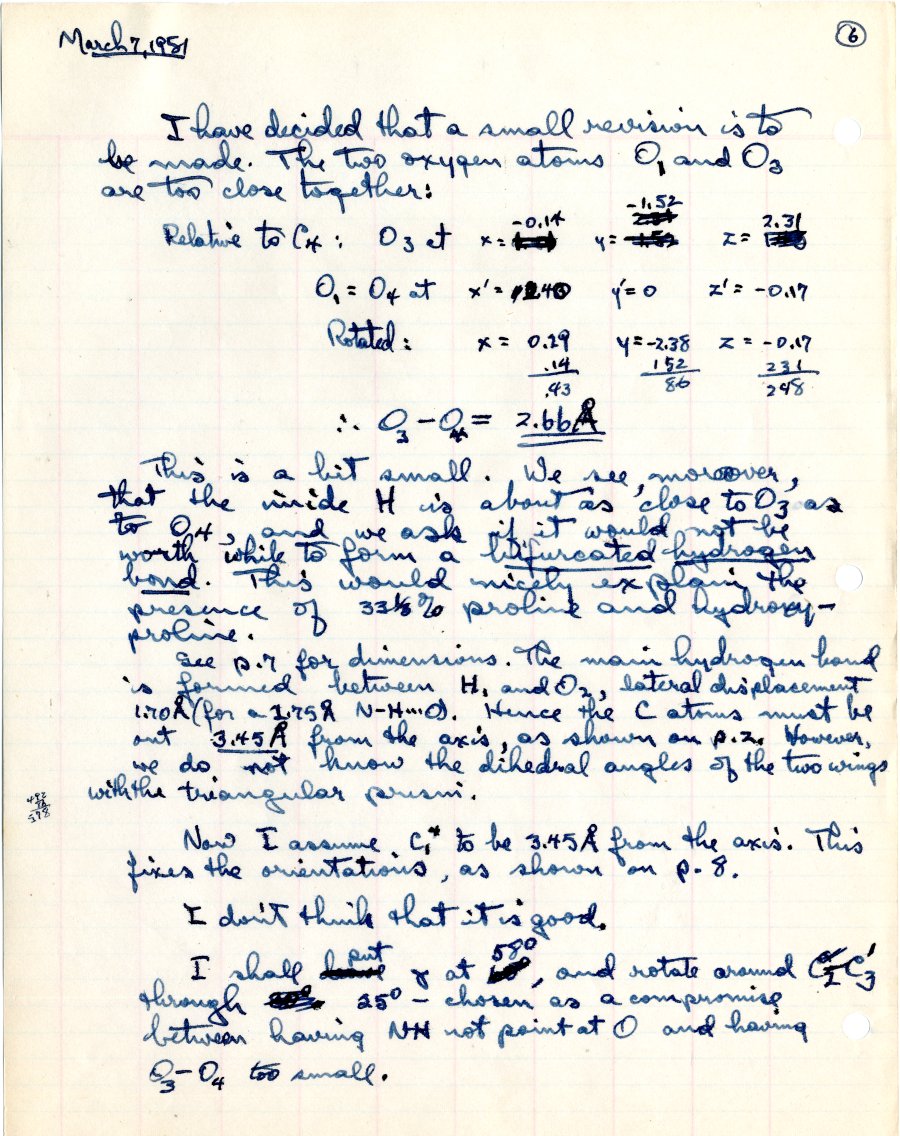 March 7, 1951
6
I have decided that a small revision is to
be made. The two oxygen atoms O₁ and O₃
are too close together:
-0.14 -1.52 2.31
Relative to C₄: O₃ at x= y= z=
O₁ = O₄ at x' = 2.40 y'=0 z' = -0.17
Rotated: x = 0.29 y=-2.38 z = -0.17
.14 152 231
.43 86 248
∴ O₃-O₄ = 2.66Å
This is a bit small. We see, moreover,
that the imide H is about as close to O₃ as
to O₄, and we ask if it would not be
worth while to form a bifurcated hydrogen
bond. This would nicely explain the
presence of 33⅓% proline and hydroxy-
proline.
See p.7 for dimensions. The main hydrogen bond
is formed between H₁ and O₂, lateral displacement
1.70Å (for a 1.75Å N-H···O). Hence the C atoms must be
out 3.45Å from the axis, as shown on p.2. However,
we do not know the dihedral angles of the two wings
with the triangular prism.
Now I assume C₁* to be 3.45Å from the axis. This
fixes the orientations, as shown on p. 8.
I don't think that it is good.
put 58°
I shall γ at , and rotate around C₂-C₃'
through 25° - chosen as a compromise
between having NH not point at O and having
O₃-O₄ too small.